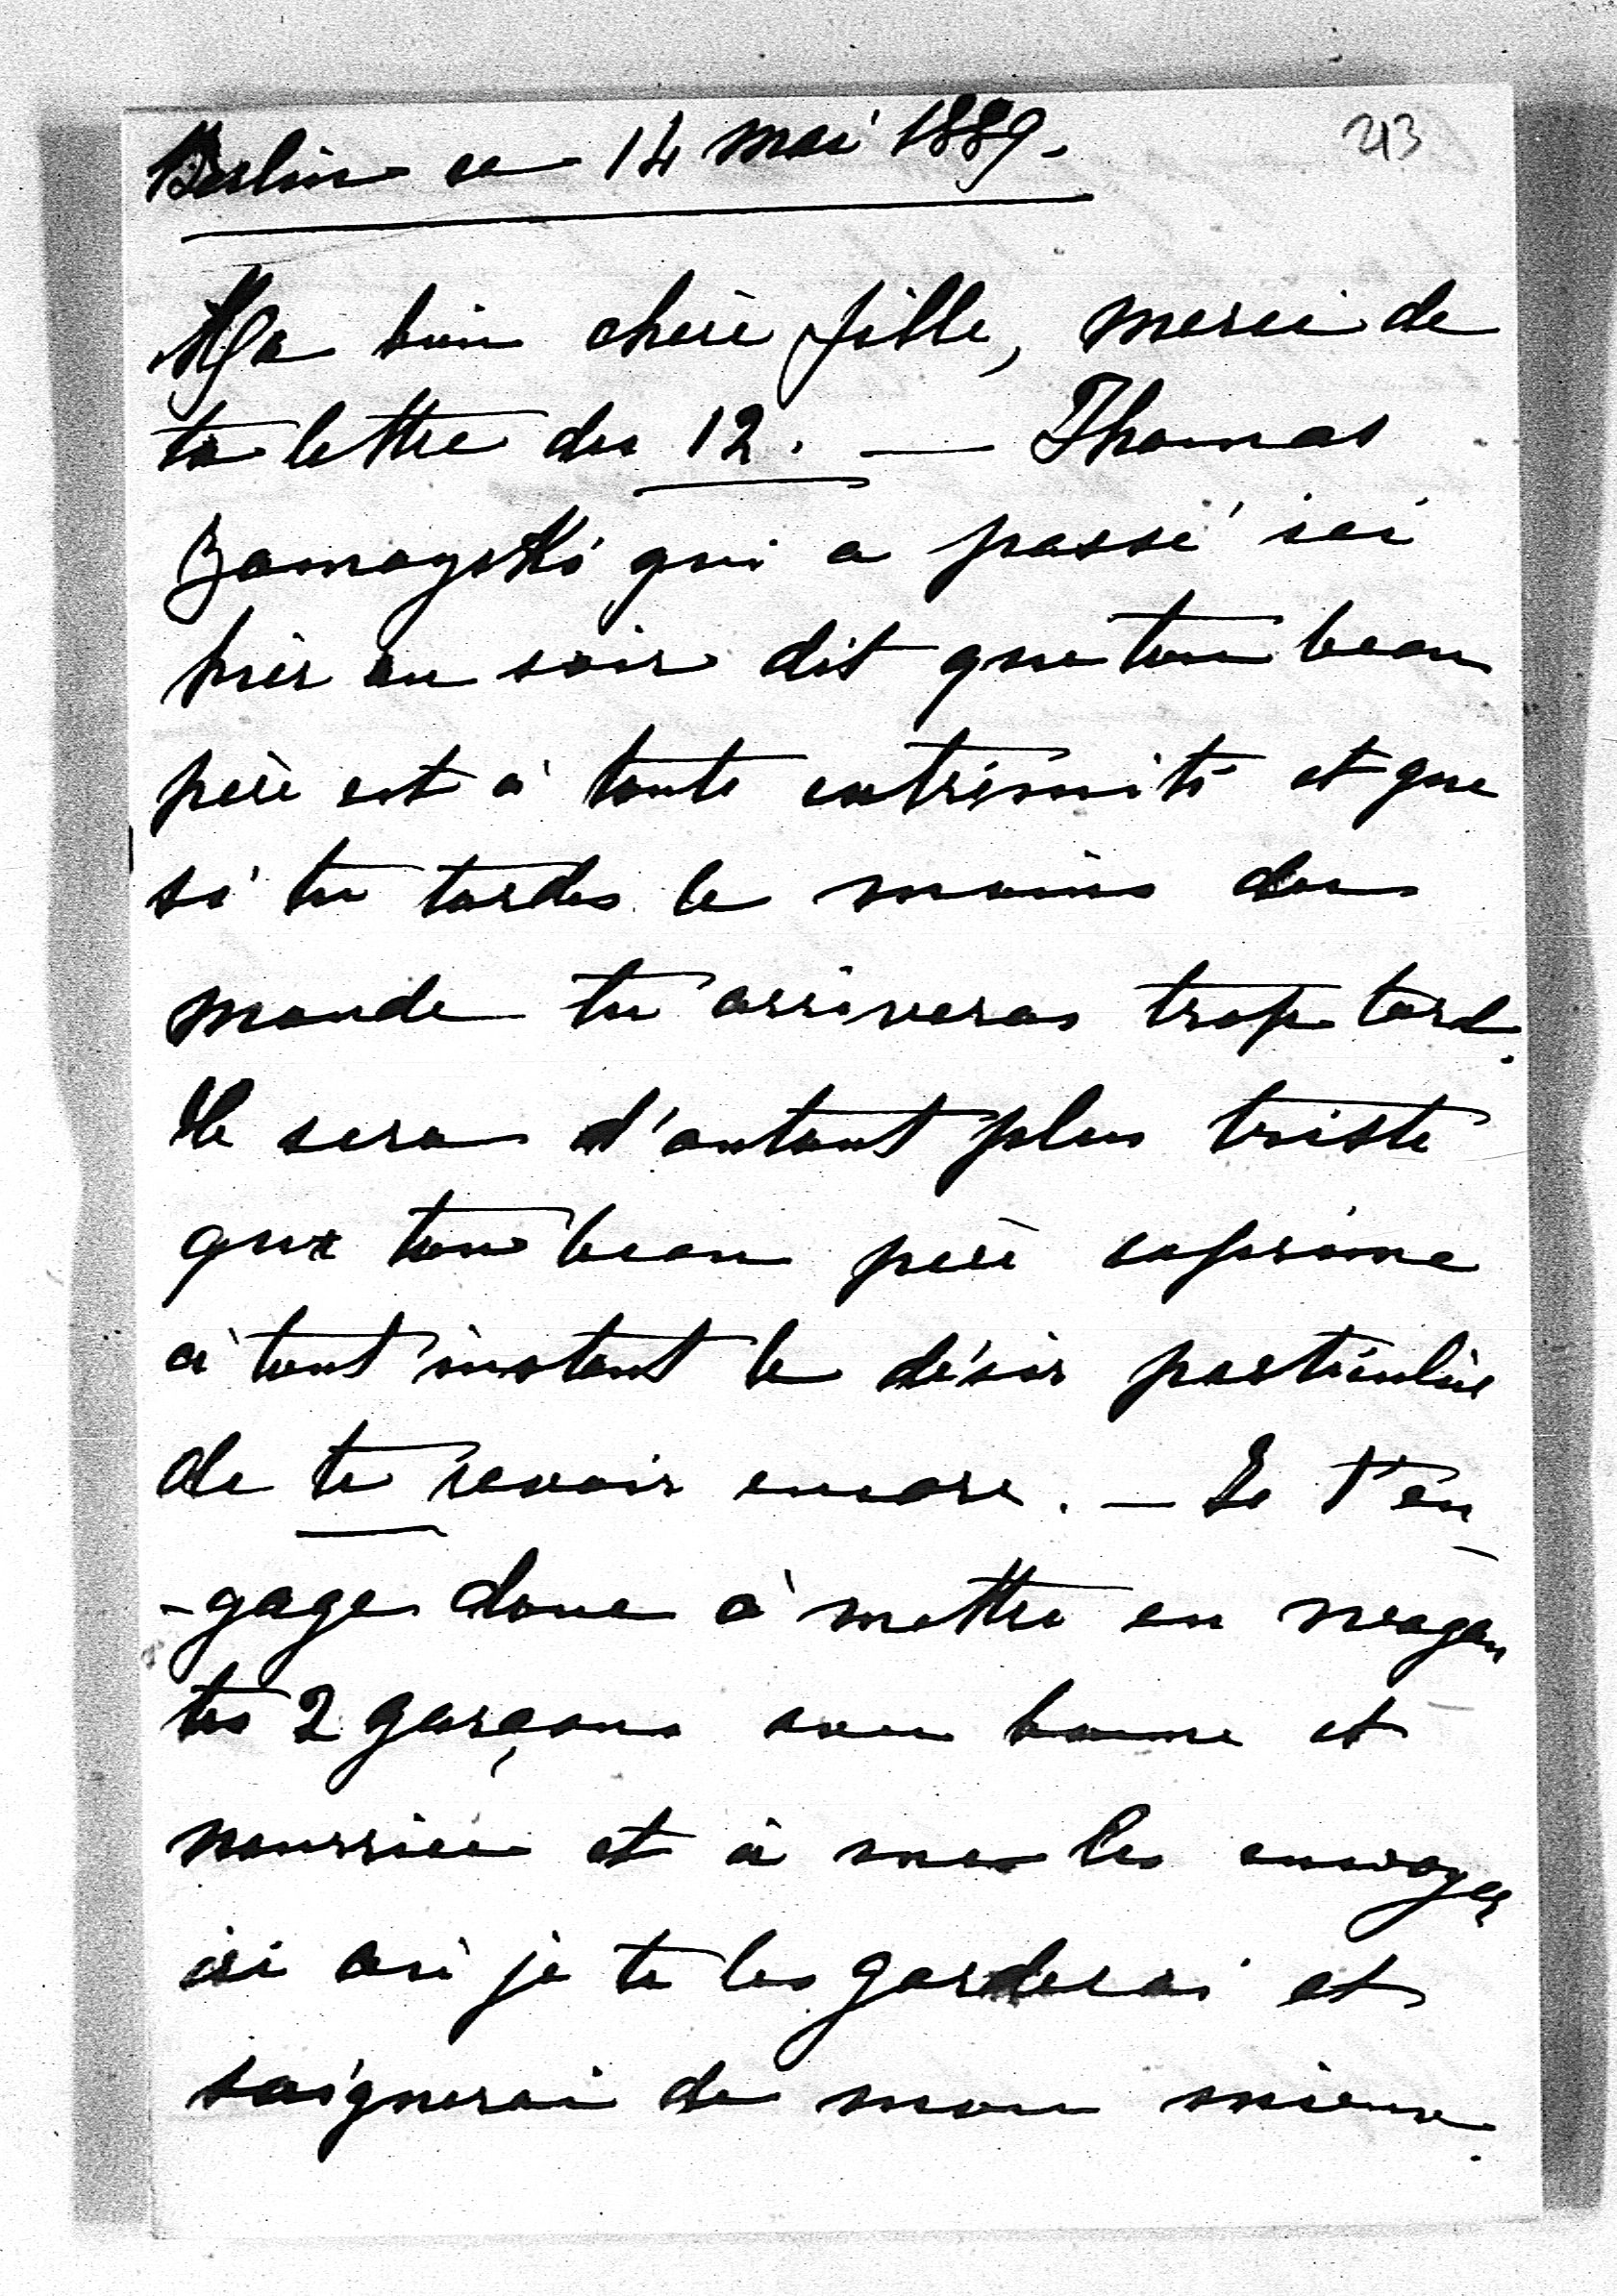 Berlin ce 14 mai 1889.
213
Ma bien chère fille, merci de
ta lettre du 12. — Thomas
Zamoyski qui a passé ici
hier au soir dit que ton beau
père est à toute extrémité et que
si tu tardes le moins du
monde tu arriveras trop tard.
Ce sera d'autant plus triste
que ton beau père exprime
à tout instant le désir particulier
de te revoir encore. — Je t'en
-gage donc à mettre en wagon
tes 2 garçons avec bonne et
nourrice et à me les envoyer
ici où je te les garderai et
soignerai de mon mieux.